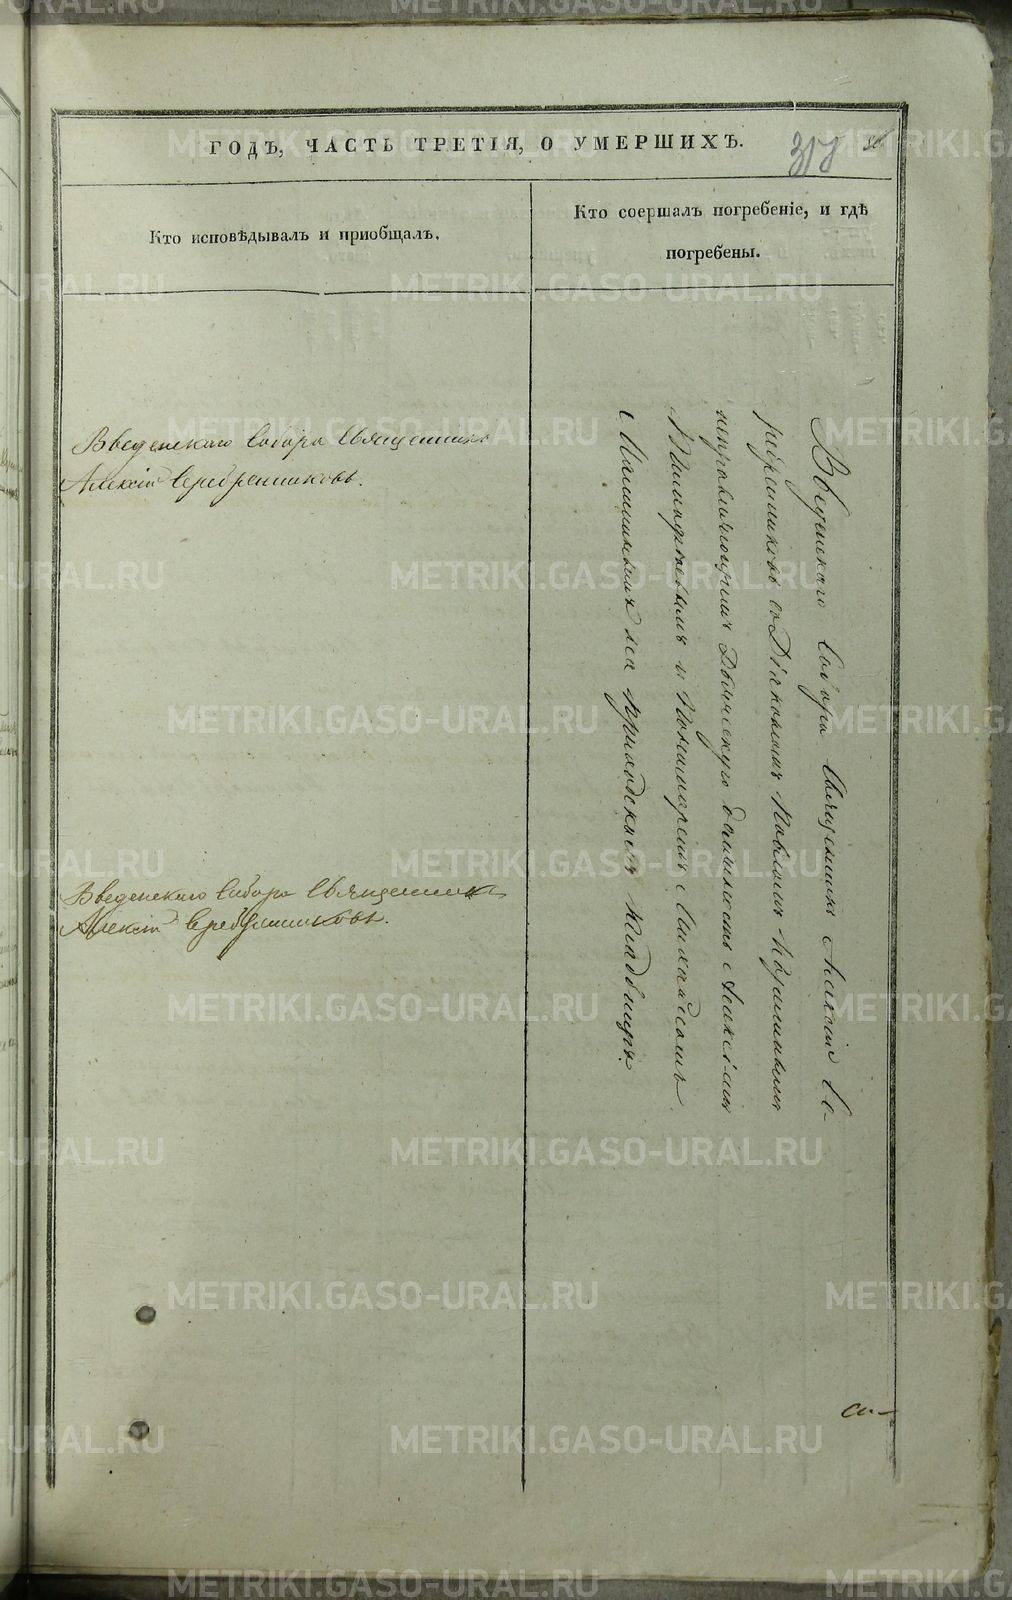 ГОДЪ, ЧАСТЬ ТРЕТІЯ, О УМЕРШИХЪ.
317
Кто исповѣдывалъ и приобщалъ.
Кто соершалъ погребеніе, и гдѣ
погребены.
Введенскаго Собора Священникъ
Алексій Серебренниковъ.
Введенскаго Собора Священникъ
Алексій Серебренниковъ.
Введенскаго Собора Священникъ Алексій Се-
ребренниковъ со Діакономъ
исправляющимъ должность
и Пономаремъ
на приходскомъ кладбищѣ.
METRIKI.GASO-URAL.RU